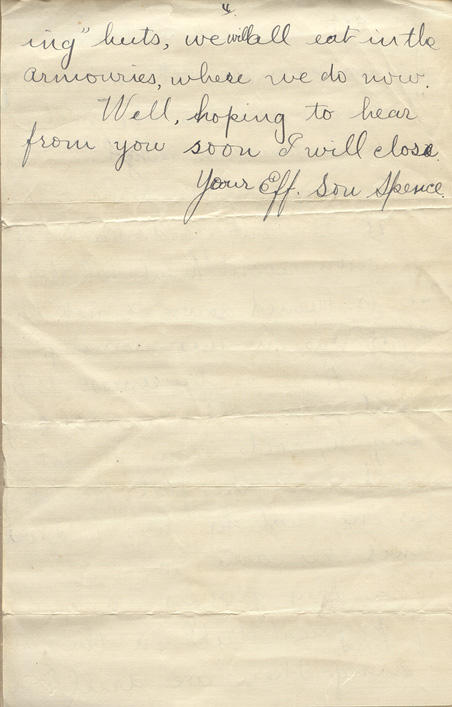 4.
ing" huts, we will all eat in the
armouries, where we do now.
Well, hoping to hear
from you soon I will close.
Your Eff. Son Spence.